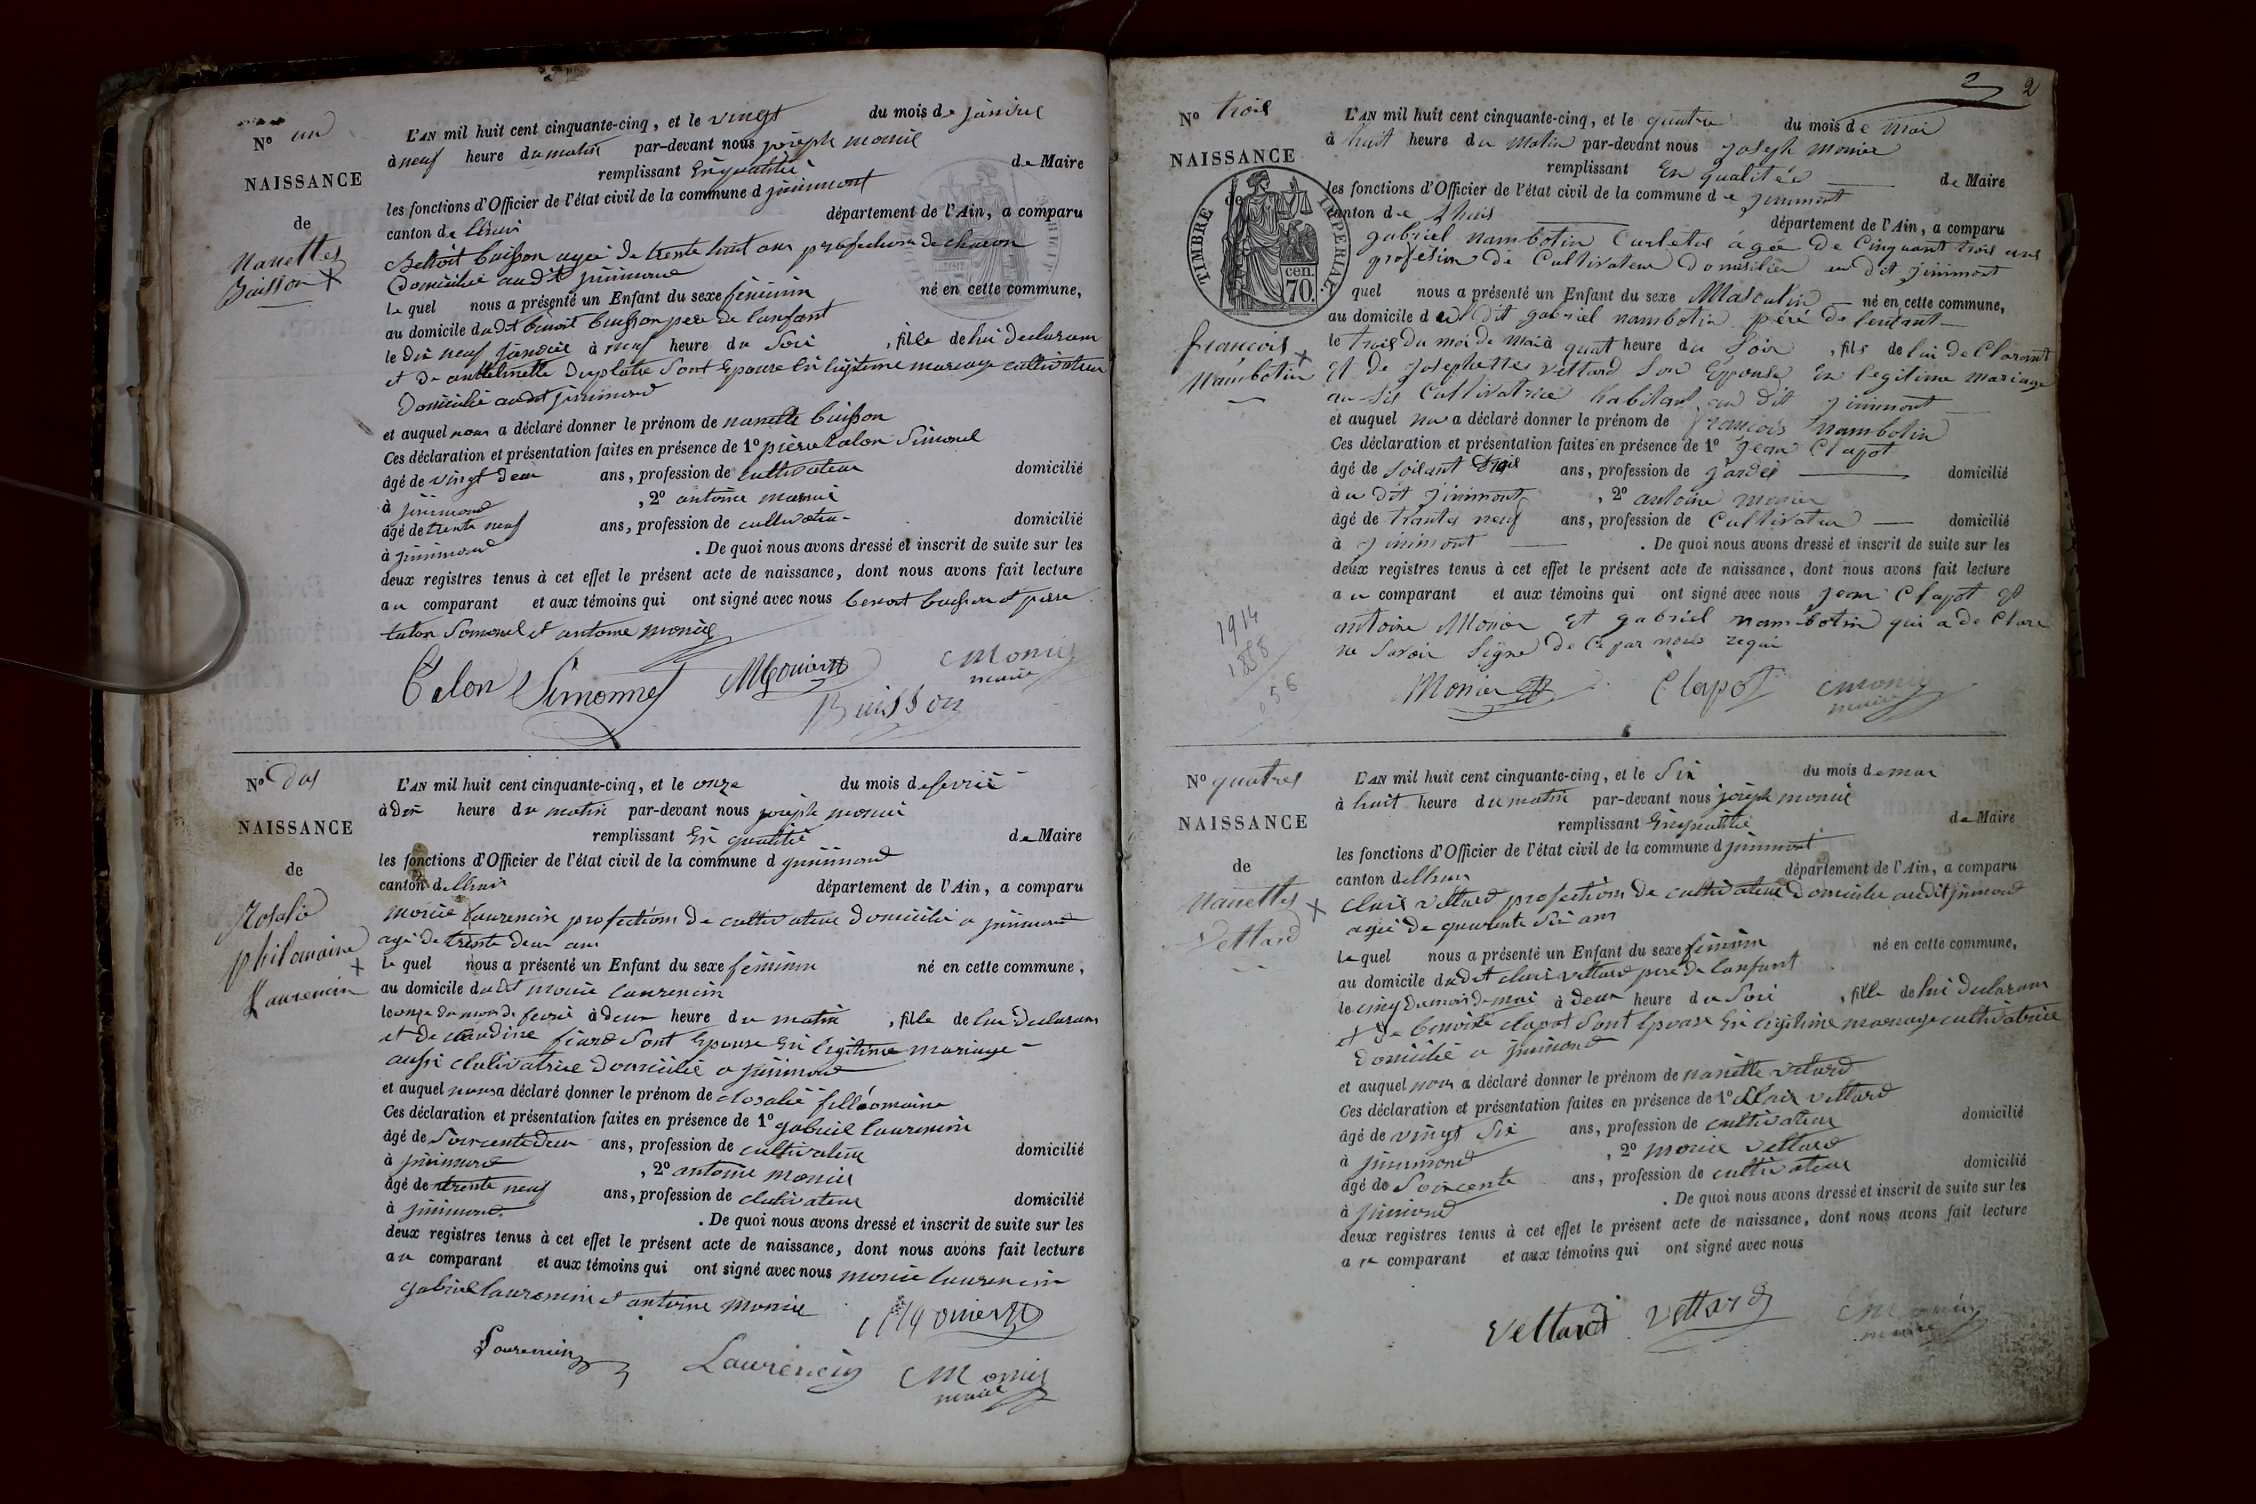 No un
NAISSANCE
de
Nanettes
Buisson X
L'AN mil huit cent cinquante-cinq, et le vingt du mois de janvié
à neuf heure du matin par-devant nous joseph monié
remplissant En qualitié de Maire
les fonctions d'Officier de l'état civil de la commune d jinimont
canton de lhuis département de l'Ain, a comparu
Benoit buisson agié de trente huit ans profection de charon
Domicilié audit jinimond
Le quel nous a présenté un Enfant du sexe féminin né en cette commune,
au domicile dudit benoit buisson pere de lanfant
le dix neuf janvié à neuf heure du Soir , fille de lui declarans
et de anthelmette Duplatre Sont Epouse En légitime mariage cultivatrice
Domicilié audit jinimond
et auquel nous a déclaré donner le prénom de nanette buisson
Ces déclaration et présentation faites en présence de 1o pière talon Simonel
âgé de vingt deux ans, profession de cultivateur domicilié
à jinimond , 2o antoine monié
âgé de trente neuf ans, profession de cultivateur domicilié
à jinimond . De quoi nous avons dressé et inscrit de suite sur les
deux registres tenus à cet effet le présent acte de naissance, dont nous avons fait lecture
au comparant et aux témoins qui ont signé avec nous benoit buisson et pière
talon Simonel et antoine monié
Talon Simonnet Monier Monier
maire
Buisson
No dos
NAISSANCE
de
Rosalie
philomaine
X
Laurencin
L'AN mil huit cent cinquante-cinq, et le onze du mois de fevrié
à dix heure du matin par-devant nous joseph monié
remplissant En qualitié de Maire
les fonctions d'Officier de l'état civil de la commune d jinimond
canton de lhuis département de l'Ain, a comparu
monié Laurencin profection de cultivateur domicilié a jinimond
agé de trente deux ans
Le quel nous a présenté un Enfant du sexe féminin né en cette commune,
au domicile dudit monié laurencin
le onze du mois de fevrié à deux heure du matin , fille de lui declarans
et de claudine fiard Sont Epouse En légitime mariage
aussi clutivatrice domicilié a jinimond
et auquel nous a déclaré donner le prénom de Rosalié filléomaine
Ces déclaration et présentation faites en présence de 1o gabriel laurencin
âgé de Soircente deux ans, profession de cultivateur domicilié
à jinimond , 2o antoine monié
âgé de trente neuf ans, profession de clutivateur domicilié
à jinimond . De quoi nous avons dressé et inscrit de suite sur les
deux registres tenus à cet effet le présent acte de naissance, dont nous avons fait lecture
au comparant et aux témoins qui ont signé avec nous monié laurencin
gabriel laurencin et antoine monié
Monier
Laurencin Laurencin Monier
maire
2 2
No trois
NAISSANCE
de
TIMBRE IMPERIAL
cen.
70.
françois X
Nambotin
1914
1858
056
L'AN mil huit cent cinquante-cinq, et le quatre du mois de Mai
à huit heure du Matin par-devant nous Joseph Monier
remplissant En qualitée de Maire
les fonctions d'Officier de l'état civil de la commune de Jinimont
canton de Lhuis département de l'Ain, a comparu
gabriel nambotin Carletet ágée de Cinquant trois ans
profésion de Cultivateur Domisilier au dit Jinimont
quel nous a présenté un Enfant du sexe Masculin né en cette commune,
au domicile du dit gabriel nambotin péré de lenfant
le trois du moi de Mai à quat heure du Soir , fils de lui de Clarant
Et de Josephettes Vettard Son Epouse En legitime mariage
au-sis Cultivatrice habitant au dit Jinimont
et auquel nou a déclaré donner le prénom de francois nambotin
Ces déclaration et présentation faites en présence de 1o Jean Clapot
âgé de soisant trois ans, profession de gardes domicilié
à u dit Jinimont , 2o antoine monier
âgé de trantes neuf ans, profession de Cultivateur domicilié
à Jinimont . De quoi nous avons dressé et inscrit de suite sur les
deux registres tenus à cet effet le présent acte de naissance, dont nous avons fait lecture
au comparant et aux témoins qui ont signé avec nous Jean Clapot Et
antoine Monier Et gabriel nambotin qui a de Clare
ne Savoir Signe de Ce par nous requi
Monier Clapot Monier
maire
No quatres
NAISSANCE
de
Nanettes X
Vettard
L'AN mil huit cent cinquante-cinq, et le Six du mois de mai
à huit heure du matin par-devant nous joseph monié
remplissant En qualitié de Maire
les fonctions d'Officier de l'état civil de la commune d jinimont
canton de lhuis département de l'Ain, a comparu
clair vettard profection de cultivateur Domicilié audit jinimond
agié de quarente Six ans
Le quel nous a présenté un Enfant du sexe féminin né en cette commune,
au domicile dudit clair vettard pere de lanfant
le cinq du mois de mai à deux heure du Soir , fille de lui declarans
et de benoite clapot Sont Epouse En légitime mariage cultivatrice
Domicilié a jinimond
et auquel nous a déclaré donner le prénom de nanette vetard
Ces déclaration et présentation faites en présence de 1o Clair vettard
âgé de vingt Six ans, profession de cultivateur domicilié
à jinimond , 2o monié vettard
âgé de Soircente ans, profession de cultivateur domicilié
à jinimond . De quoi nous avons dressé et inscrit de suite sur les
deux registres tenus à cet effet le présent acte de naissance, dont nous avons fait lecture
au comparant et aux témoins qui ont signé avec nous
Vettard Vettard Monier
maire